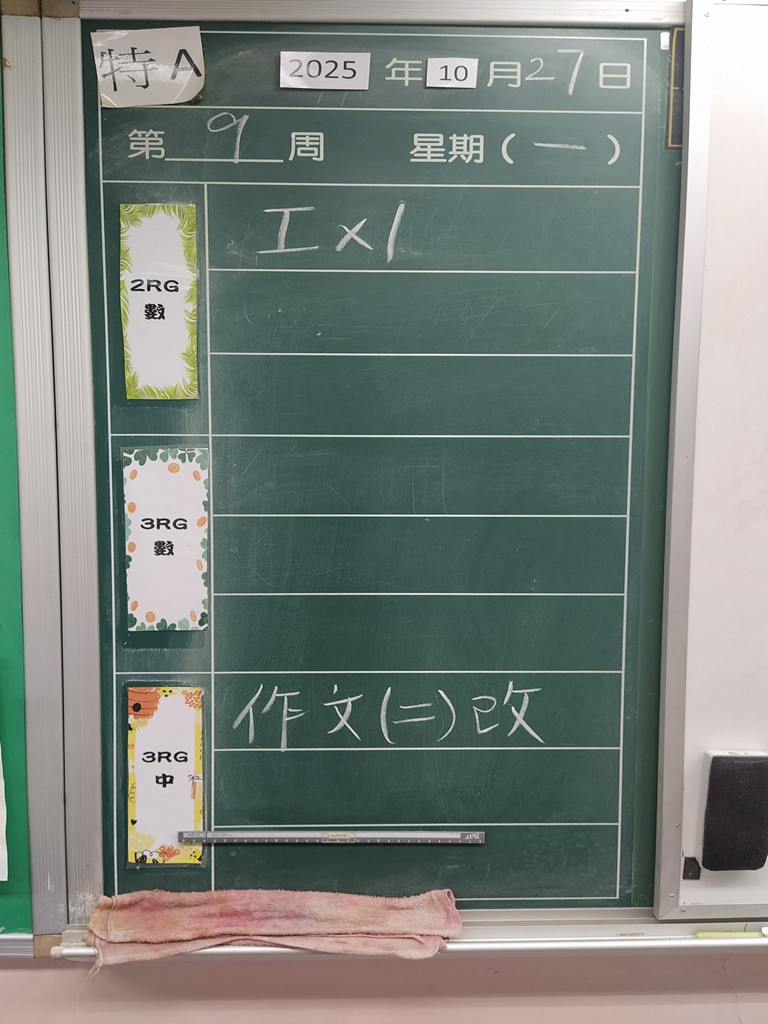 特A
2025年10月27日
第9周 星期(一)
2RG
數
工×1
3RG
數
3RG
中
作文(二)改